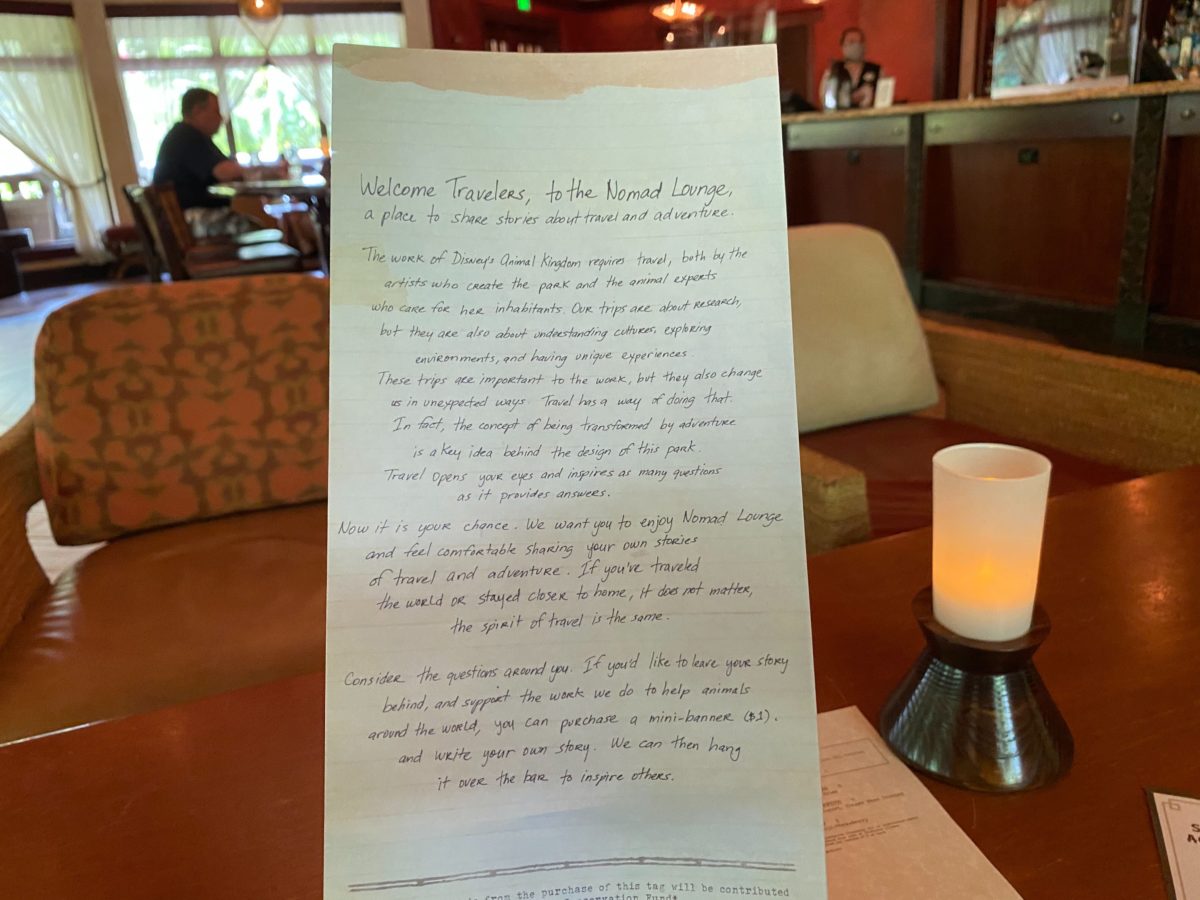 Welcome Travelers, to the Nomad Lounge,
a place to share stories about travel and adventure.
The work of Disney's Animal Kingdom requires travel, both by the
artists who create the park and the animal experts
who care for her inhabitants. Our trips are about research,
but they are also about understanding cultures, exploring
environments, and having unique experiences
These trips are important to the work, but they also change
us in unexpected ways. Travel has a way of doing that.
In fact, the concept of being transformed by adventure
is a key idea behind the design of this park.
Travel opens your eyes and inspires as many questions
as it provides answers.
Now it is your chance. We want you to enjoy Nomad Lounge
and feel comfortable sharing your own stories
of travel and adventure. If you've traveled
the world or stayed closer to home, it does not matter,
the spirit of travel is the same.
Consider the questions around you. If you'd like to leave your story
behind, and support the work we do to help animals
around the world, you can purchase a mini-banner ($1).
and write your own story. We can then hang
it over the bar to inspire others.
from the purchase of this tag will be contributed